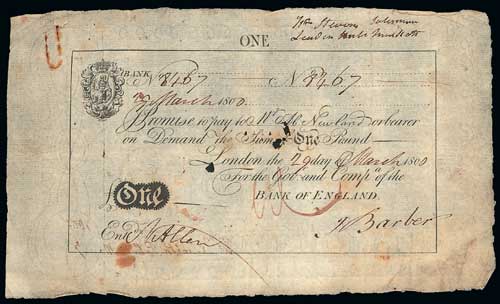 ONE
Wm Stevens
Leaden
BANK No 8467 No 8467
29 March 1800
I Promise to pay to Mr. Abm. Newland or bearer
on Demand the Sum of One Pound
London the 29 day of March 1800
For the Gov.r and Comp.a of the
BANK OF ENGLAND.
£ One
Entd. J Allen
J Barber